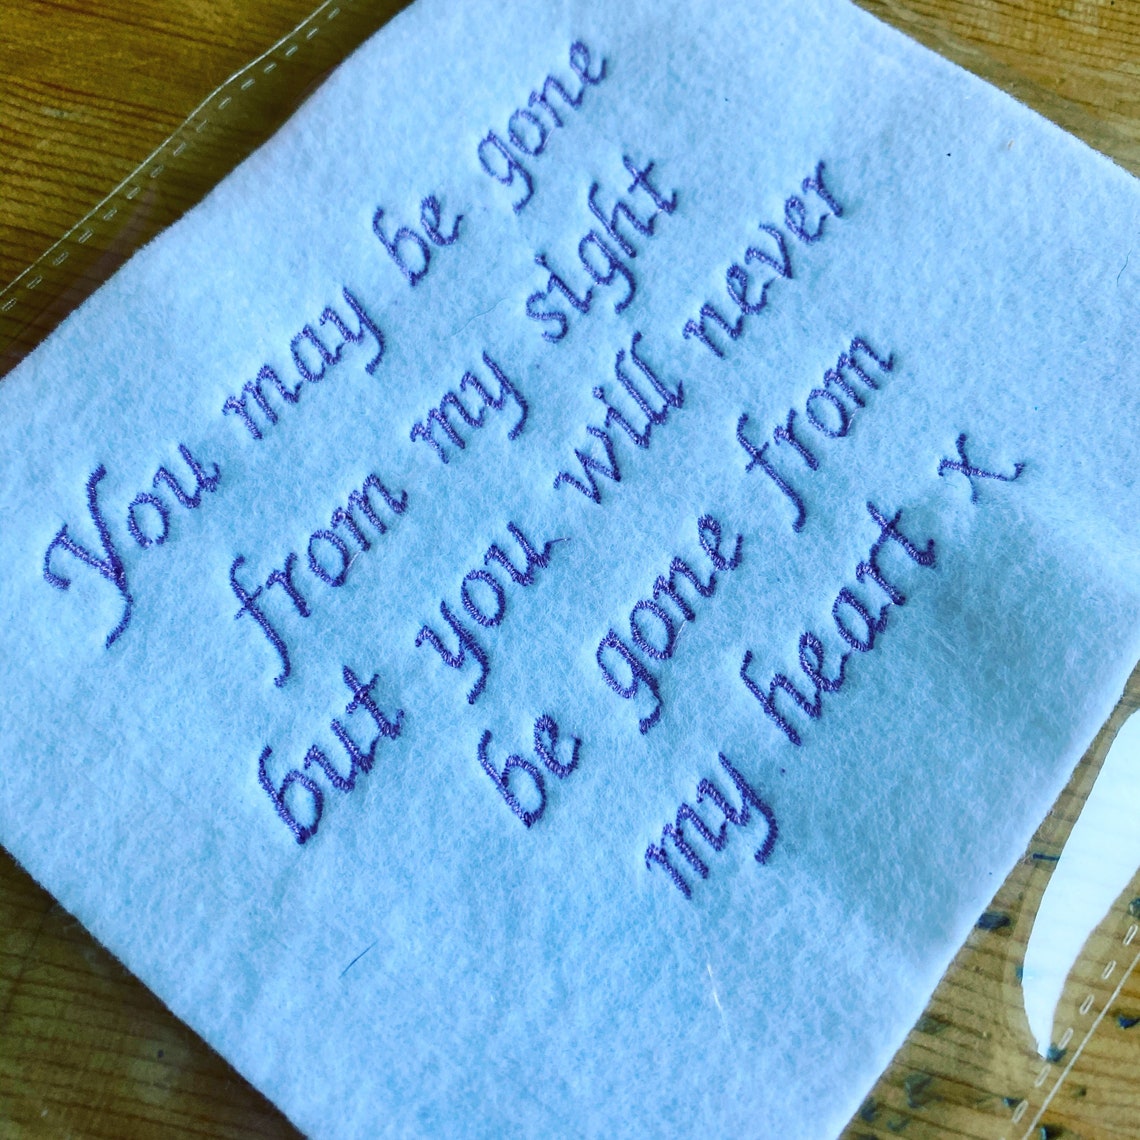 You may be gone
from my sight
but you will never
be gone from
my heart x